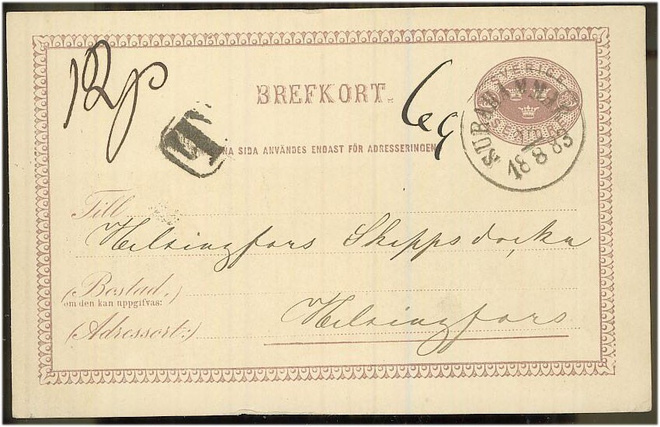 12p
BREFKORT.
6g
SVERIGE
SURAHAMMAR
18 8 83
T
NA SIDA ANVÄNDES ENDAST FÖR ADRESSERINGEN
Till
Helsingfors Skeppsdocka
(Bostad,)
om den kan uppgifvas:
Helsingfors
(Adressort:)